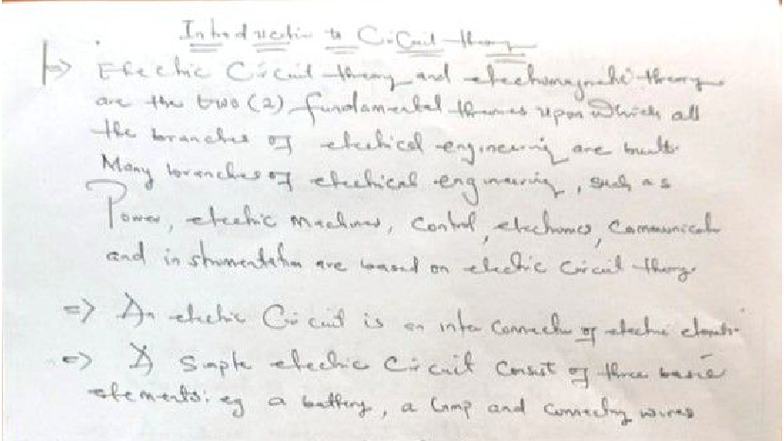 Introduction to Circuit theory
=> Electric Circuit theory and electromagnetic theory
are the two (2) fundamental themes upon which all
the branches of electrical engineering are built.
Many branches of electrical engineering, such as
Power, electric machines, Control, electronics, Communicat
and instrumentation are based on electric circuit theory.
=> An electric Circuit is an inter connect of electric elements.
=> A Simple electric Circuit Consist of three basic
elements: eg a battery, a lamp and connecting wires